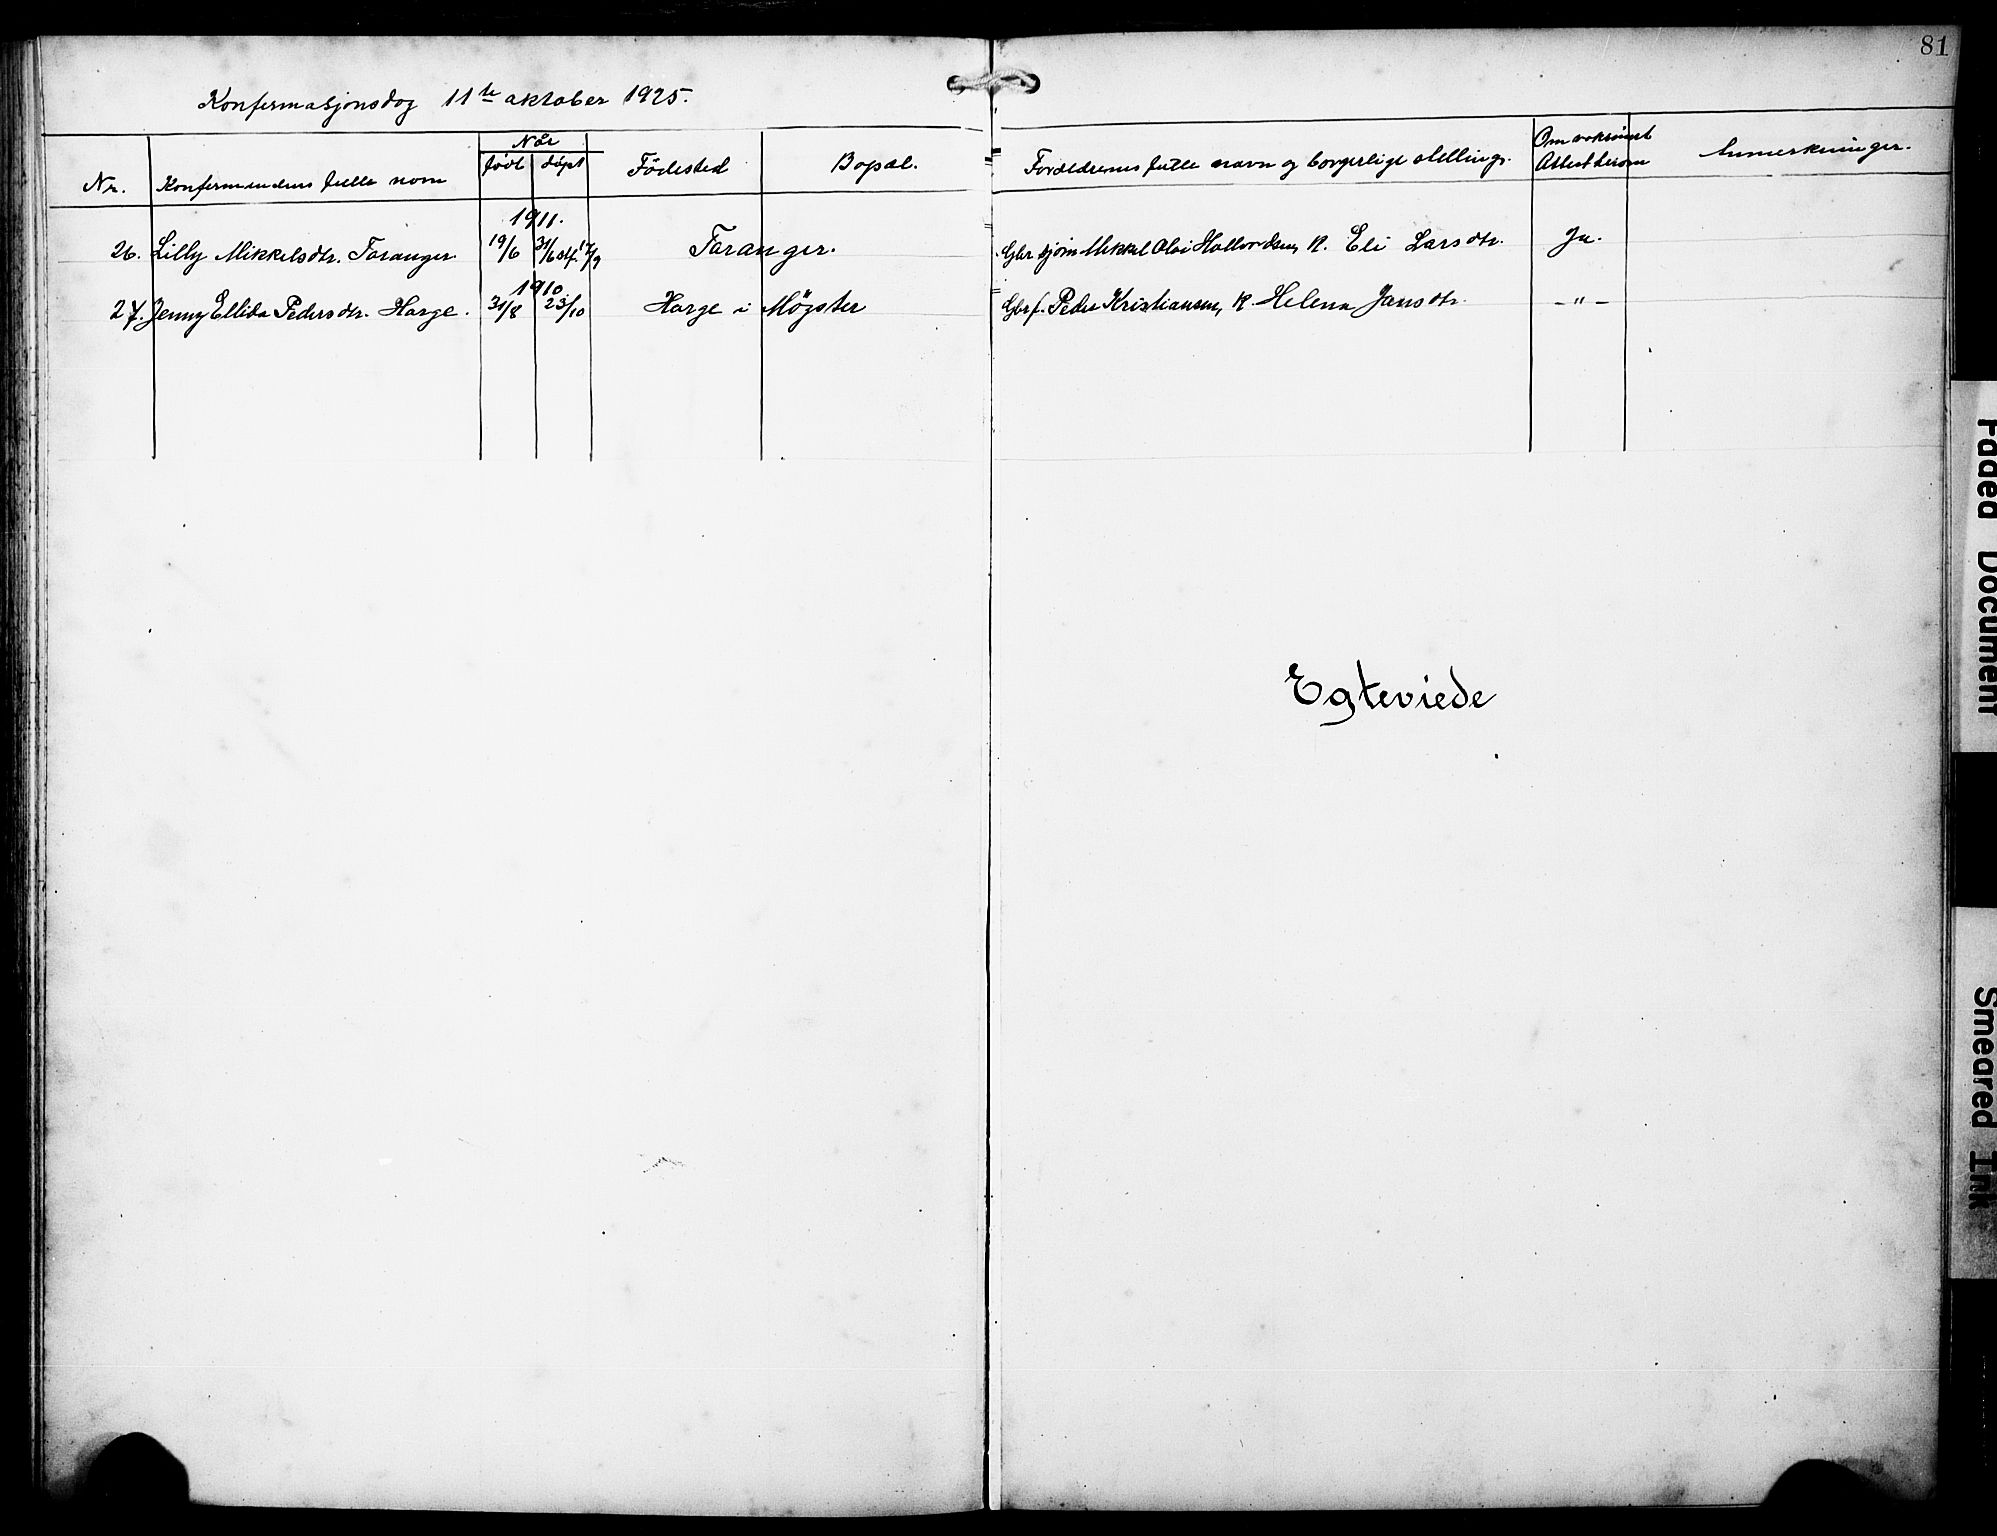 81
Konfermasjonsdag 11te oktober 1925.
Nr. Konfermandens fulle navn Når født døpt Fødested Bopæl. Forældrenes fulle navn og borgerlige stilling. Om vaksinert Attest derom Anmerkninger.
1911.
26. Lilly Mikkelsdtr. Foranger. 19/6 31/6 stf. 17/9 Foranger. Gbr. Mikkel Olai Hallvordsen, K. Eli Larsdtr. Ja.
1910
27. Jenny Ellida Pedersdtr. Harge. 31/8 23/10 Harge i Møgster Gbrf. Peder Kristiansen, K. Helena Jansdtr. - " -
Egteviede
Faded Document
Smeared Ink